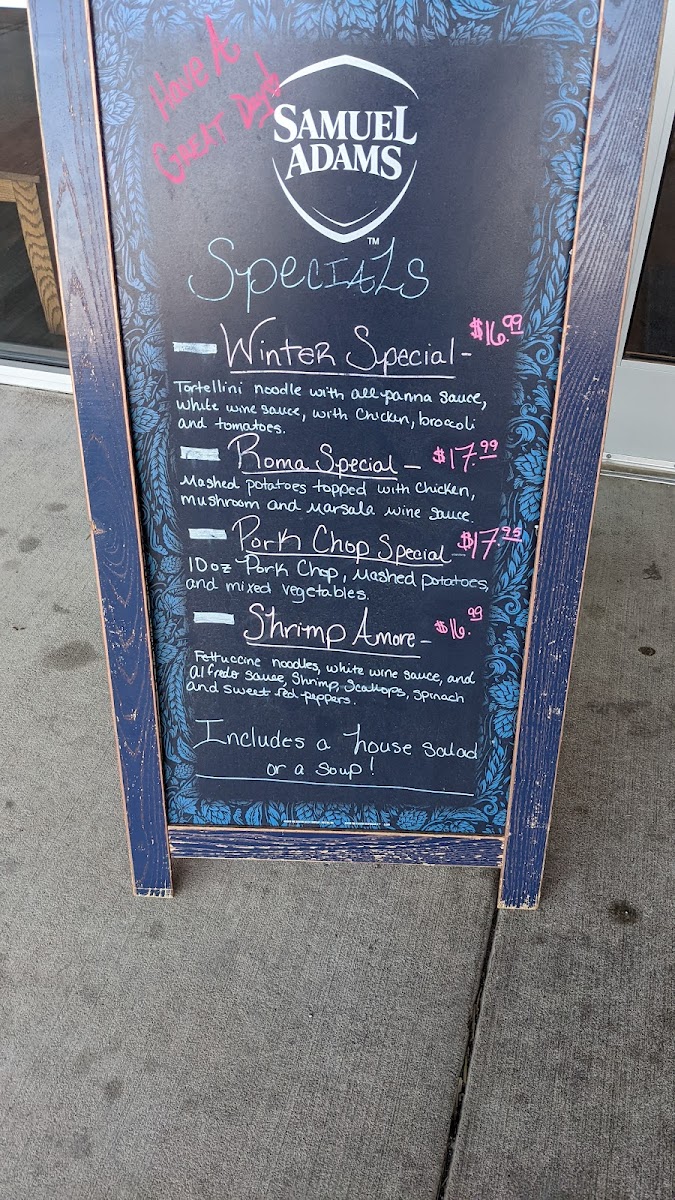 Have A
Great Day!
SAMUEL
ADAMS
TM
Specials
Winter Special - $16.99
Tortellini noodle with all panna sauce,
White wine sauce, with Chicken, brocoli
and tomatoes.
Roma Special - $17.99
Mashed potatoes topped with Chicken,
mushroom and Marsala wine sauce.
Pork Chop Special $17.99
10oz Pork Chop, Mashed potatoes,
and mixed vegetables.
Shrimp Amore - $16.99
Fettuccine noodles, white wine sauce, and
alfredo sause, Shrimp, Scallops, spinach
and sweet red peppers.
Includes a house salad
or a soup!